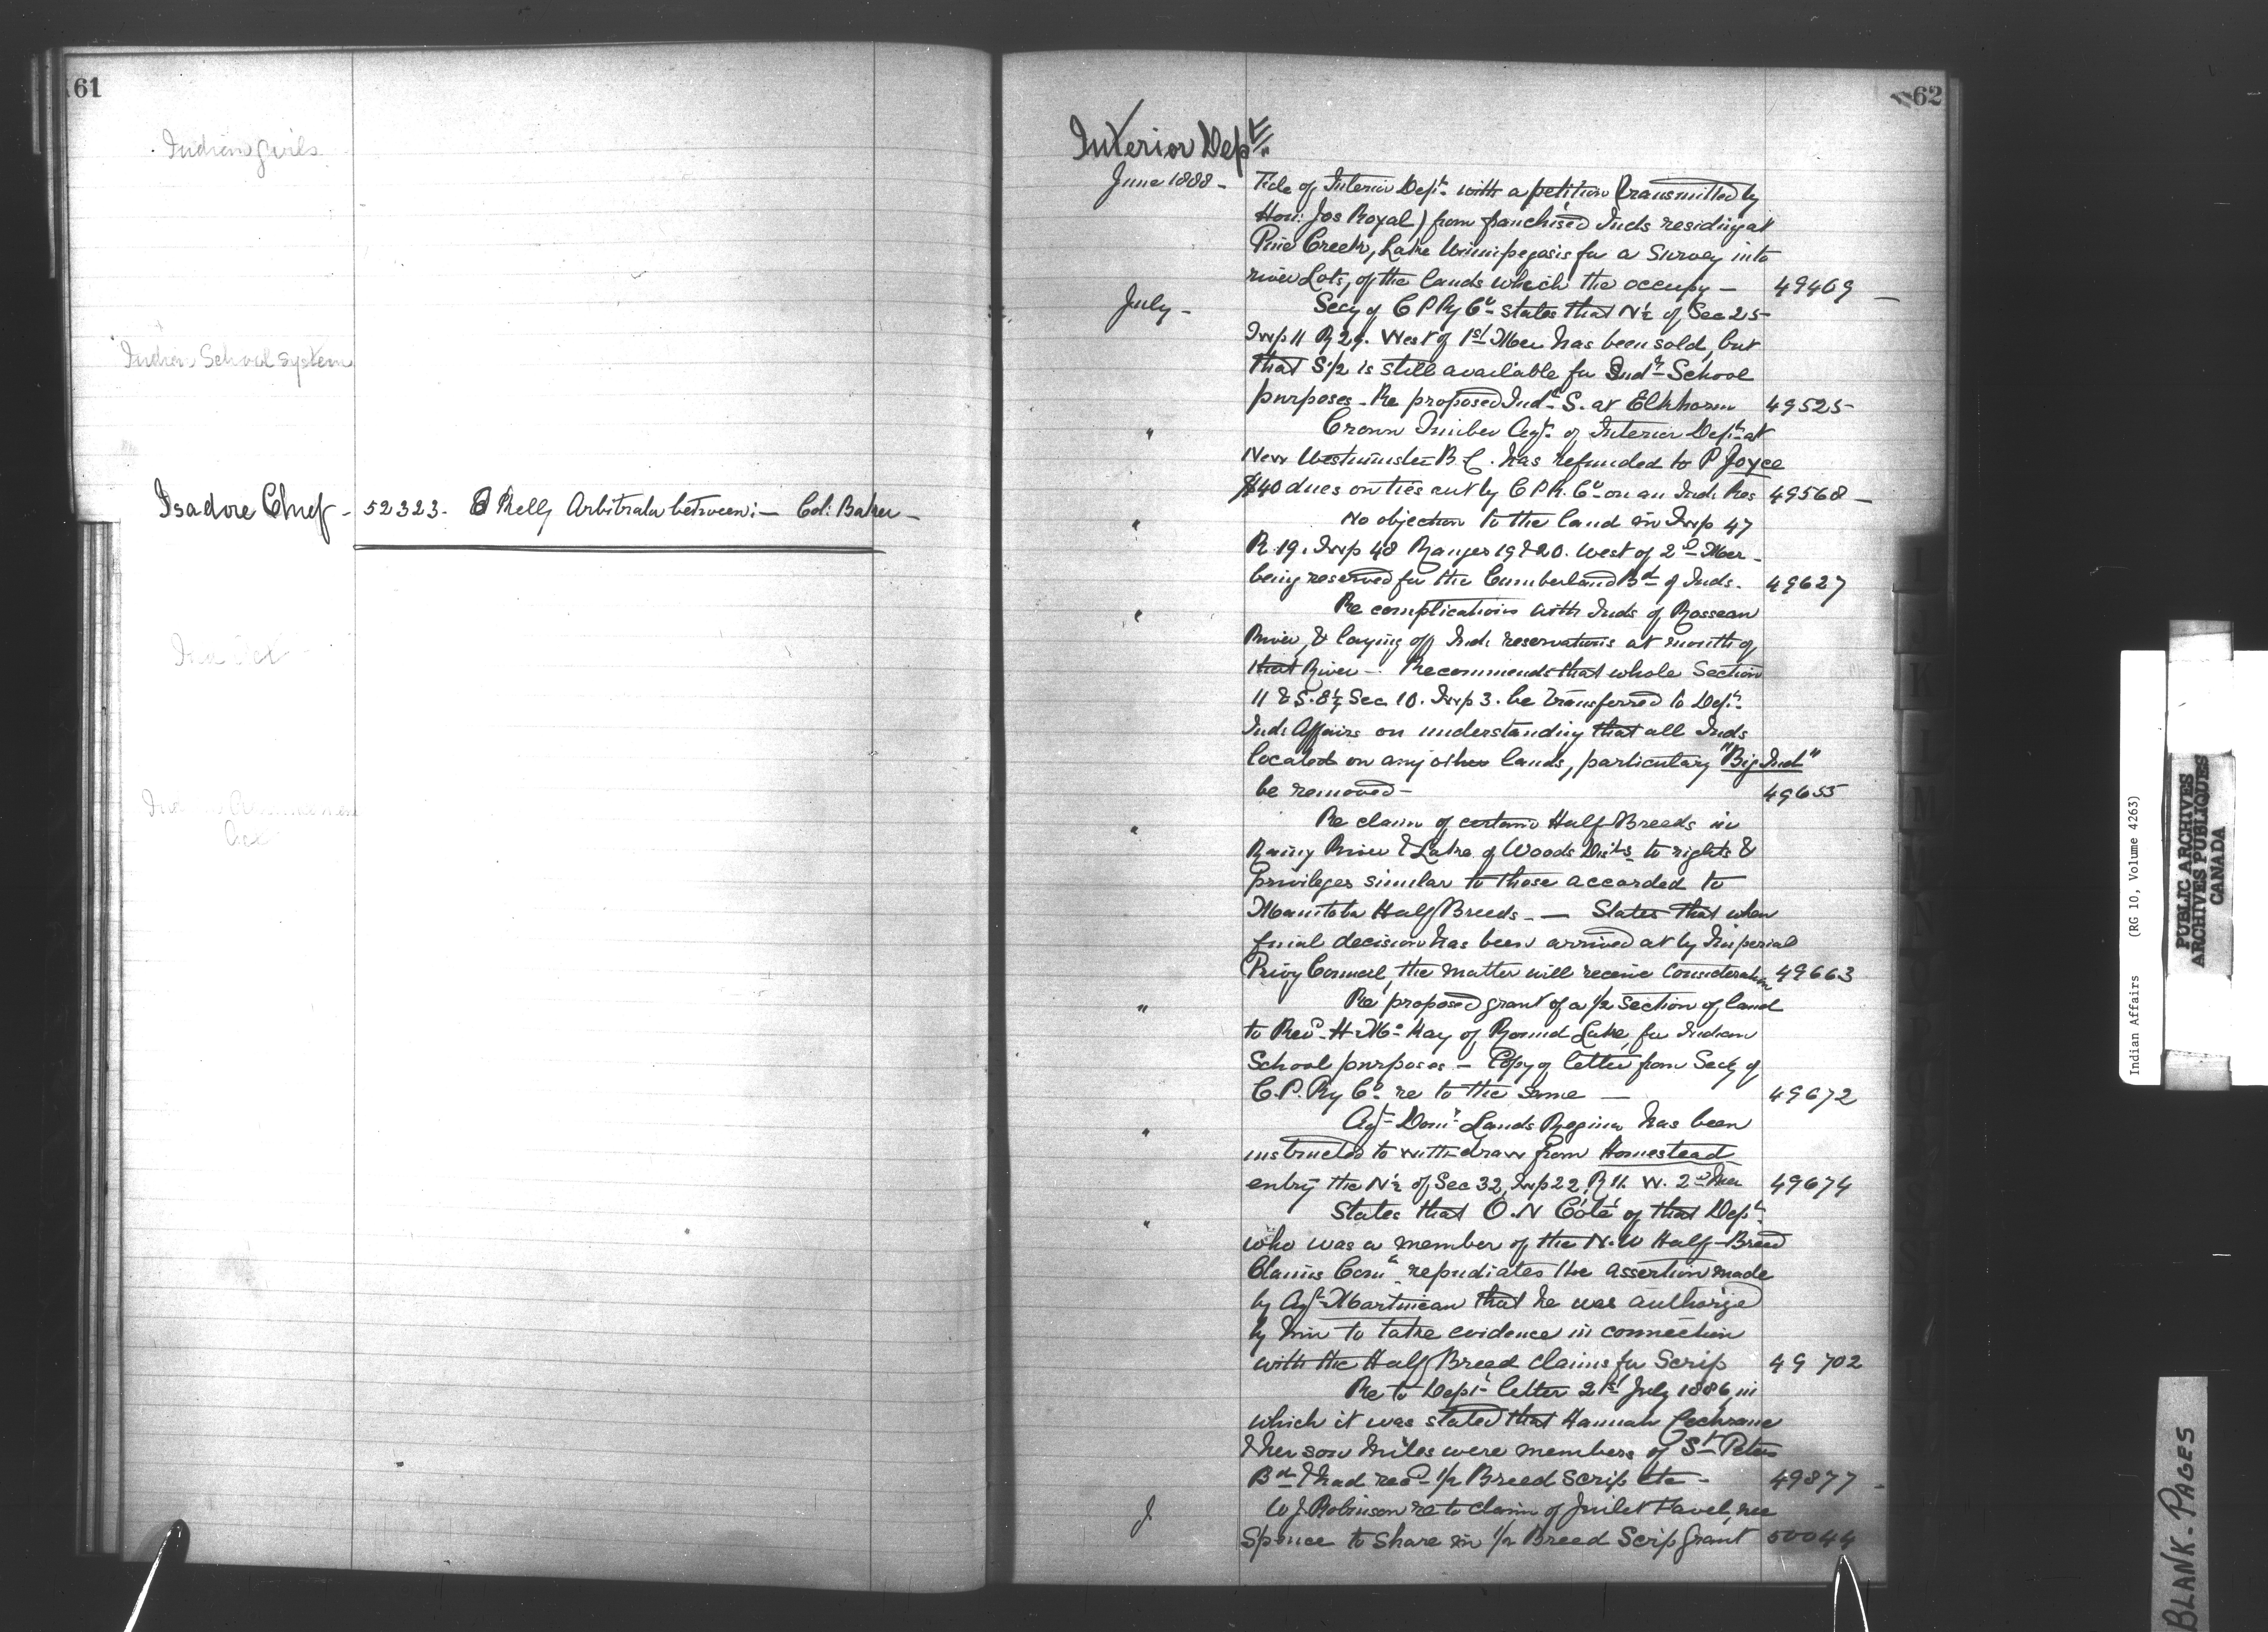 61
Indian Girls
Indian School system
Isadore Chief - 52323. Kelly Arbitrator between :- Col: Baker -
Act
62
Interior Dept
June 1888 - Tele of Interior Dept. with a petition (transmitted by
Hon: Jos Royal) from franchised Inds residing at
Pine Creek, Lake Winnipegosis for a Survey into
river Lots, of the lands which the occupy - 49469 -
July - Secy of C P Ry Co states that N½ of Sec 25
Twp 11 R 29. West of 1st Mer has been sold, but
that S ½ is still available for Indn School
purposes - Re proposed Indn S. at Elkhorn 49525
" Crown Timber Agt. of Interior Dept. at
New Westminster B.C. has refunded to P Joyce
$40 dues on ties cut by C P R. Co on an Ind. Res 49568 -
" No objection to the land in Twp 47
R. 19. Twp 48 Ranges 19 & 20. West of 2d Mer -
being reserved for the Cumberland Bd of Inds. 49627
" Re complications with Inds of Rosseau
River, & laying off Ind. reservations at mouth of
that River - Recommends that whole Section
11 & S. E¼ Sec 10. Twp 3. be transferred to Dept.
Inds Affairs on understanding that all Inds
located on any other lands, particulary "Big Ind"
be removed - 49655
" Re claim of certain Half Breeds in
Rainy River & Lake of Woods Dists to rights &
privileges similar to those accorded to
Manitoba Half Breeds - — States that when
final decision has been arrived at by Imperial
Privy Council, the matter will receive Consideration 49663
" Re proposed grant of a ½ section of land
to Revd H. Mc Kay of Round Lake, for Indian
School purposes - Copy of letter from Secy of
C.P. Ry Co. re to the same - 49672
" Agt Domn Lands Regina has been
instructed to withdraw from Homestead
entry the N½ of Sec 32, Twp 22, R 11. W. 2d Mer 49674
" States that O. N Coté of that Dept.
who was a member of the N. W Half-Breed
Claims Comn repudiates the assertion made
by Agt Martineau that he was authorized
by him to take evidence in connection
with the Half Breed claims for Scrip 49 702
Re to Dept letter 21st July 1886, in
which it was stated that Hannah Cochrane
& her son Miles were members of St Peters
Bd & had recd ½ Breed scrip etc - 49877 -
W J Robinson re to claim of Juilet Favel, nee
Spence to share in ½ Breed Scrip grant 50044
I
K
L
M
Indian Affairs (RG 10, Volume 4263)
PUBLIC ARCHIVES
ARCHIVES PUBLIQUES
CANADA
BLANK. PAGES